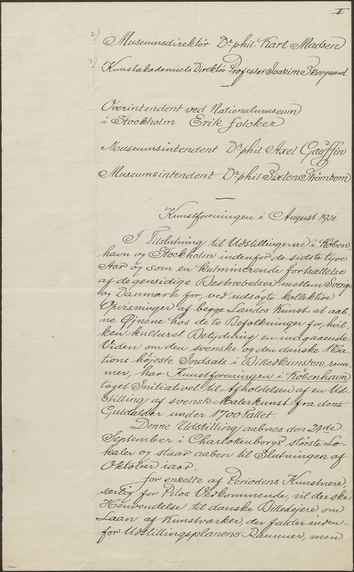 2) Museumsdirektör Dr phil. Karl Madsen
3) Kunstakademiets Direktör Professor Joakim Skovgaard
Overintendent ved Nationalmuseum
i Stockholm Erik Folcker
Museumsintendent Dr phil Axel Gauffin
Museumsintendent Dr phil Sixten Strömbom
Kunstforeningen i August 19
I Tilslutning til Udstillingerne i Köben
havn og Stockholm indenfor de sidste tyve
Aar og som en kulminerende fortsættelse
af de gensidige Bestræbelser mellem Sverige
og Danmark for ved udsögte kollektive
Opvisninger af begge Landes Kunst at aab
ne Öjnene hos de to Befolkninger for, hvil
ken kulturel Betydning en indgaaende
Viden om den svenske og den danske Na
tions højeste Indsats i Billedkunsten rum
mer, har Kunstforeningen i København
taget Initiativet til Afholdelsen af en Ud
stilling af svensk Malerkunst fra dens
Guldalder under 1700 Tallet.
Denne Udstilling aabnes den
September i Charlottenborgs störste Lo
kaler og staar aaben til Slutningen af
Oktober iaar.
For enkelte af Periodens Kunstnere,
særlig for Pilos Vedkommende, vil der ske
Henvendelse til danske Billedejere om
Laan af Kunstværker, der falder inden
for Udstillingsplanens Rammer, men